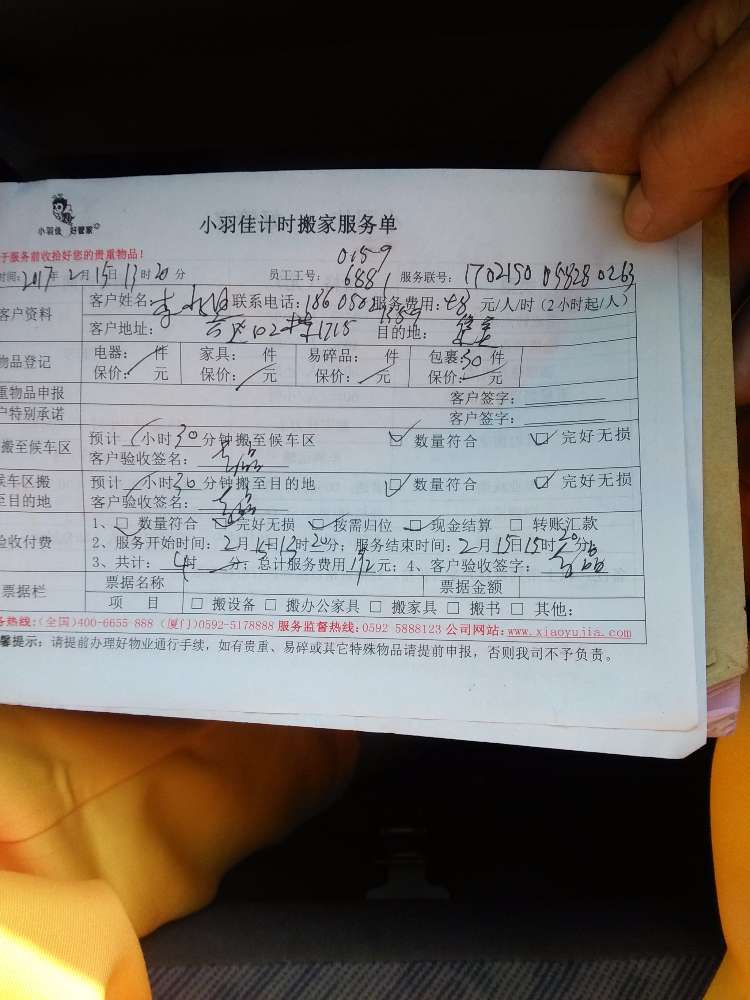 小羽佳 好管家
小羽佳计时搬家服务单
于服务前收拾好您的贵重物品！
0159
时间：2017年2月15日13时20分 员工工号：6881 服务联号：1702150 05828 0263
客户资料 客户姓名：李 联系电话：186050 服务费用：48 元/人/时（2小时起/人）
客户地址：1715 目的地：
物品登记 电器： 件 家具： 件 易碎品： 件 包裹：30件
保价： 元 保价： 元 保价： 元 保价： 元
重物品申报 客户签字：
户特别承诺 客户签字：
搬至候车区 预计 小时30分钟搬至候车区 ☑ 数量符合 ☑ 完好无损
客户验收签名：
候车区搬 预计 小时30分钟搬至目的地 ☑ 数量符合 ☑ 完好无损
至目的地 客户验收签名：
1、□ 数量符合 ☑ 完好无损 ☑ 按需归位 ☑ 现金结算 □ 转账汇款
验收付费 2、服务开始时间：2月15日13时20分；服务结束时间：2月15日15时20分；
3、共计：4时 分；总计服务费用192元；4、客户验收签字：
票据栏 票据名称 票据金额
项 目 □ 搬设备 □ 搬办公家具 □ 搬家具 □ 搬书 □ 其他：
务热线：(全国)400-6655 888 (厦门)0592-5178888 服务监督热线：0592 5888123 公司网站：www.xiaoyujia.com
馨提示：请提前办理好物业通行手续，如有贵重、易碎或其它特殊物品请提前申报，否则我司不予负责。